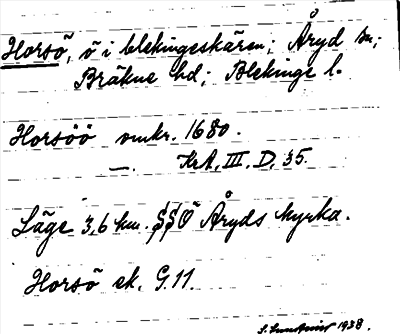 Horsö, ö i blekingeskären; Åryd sn;
Bräkne hd; Blekinge l.
Horsöö omkr. 1680.
—. KrA, III, D, 35.
Läge 3,6 km SSÖ Åryds kyrka.
Horsö ek. G.11.
S. 1938.